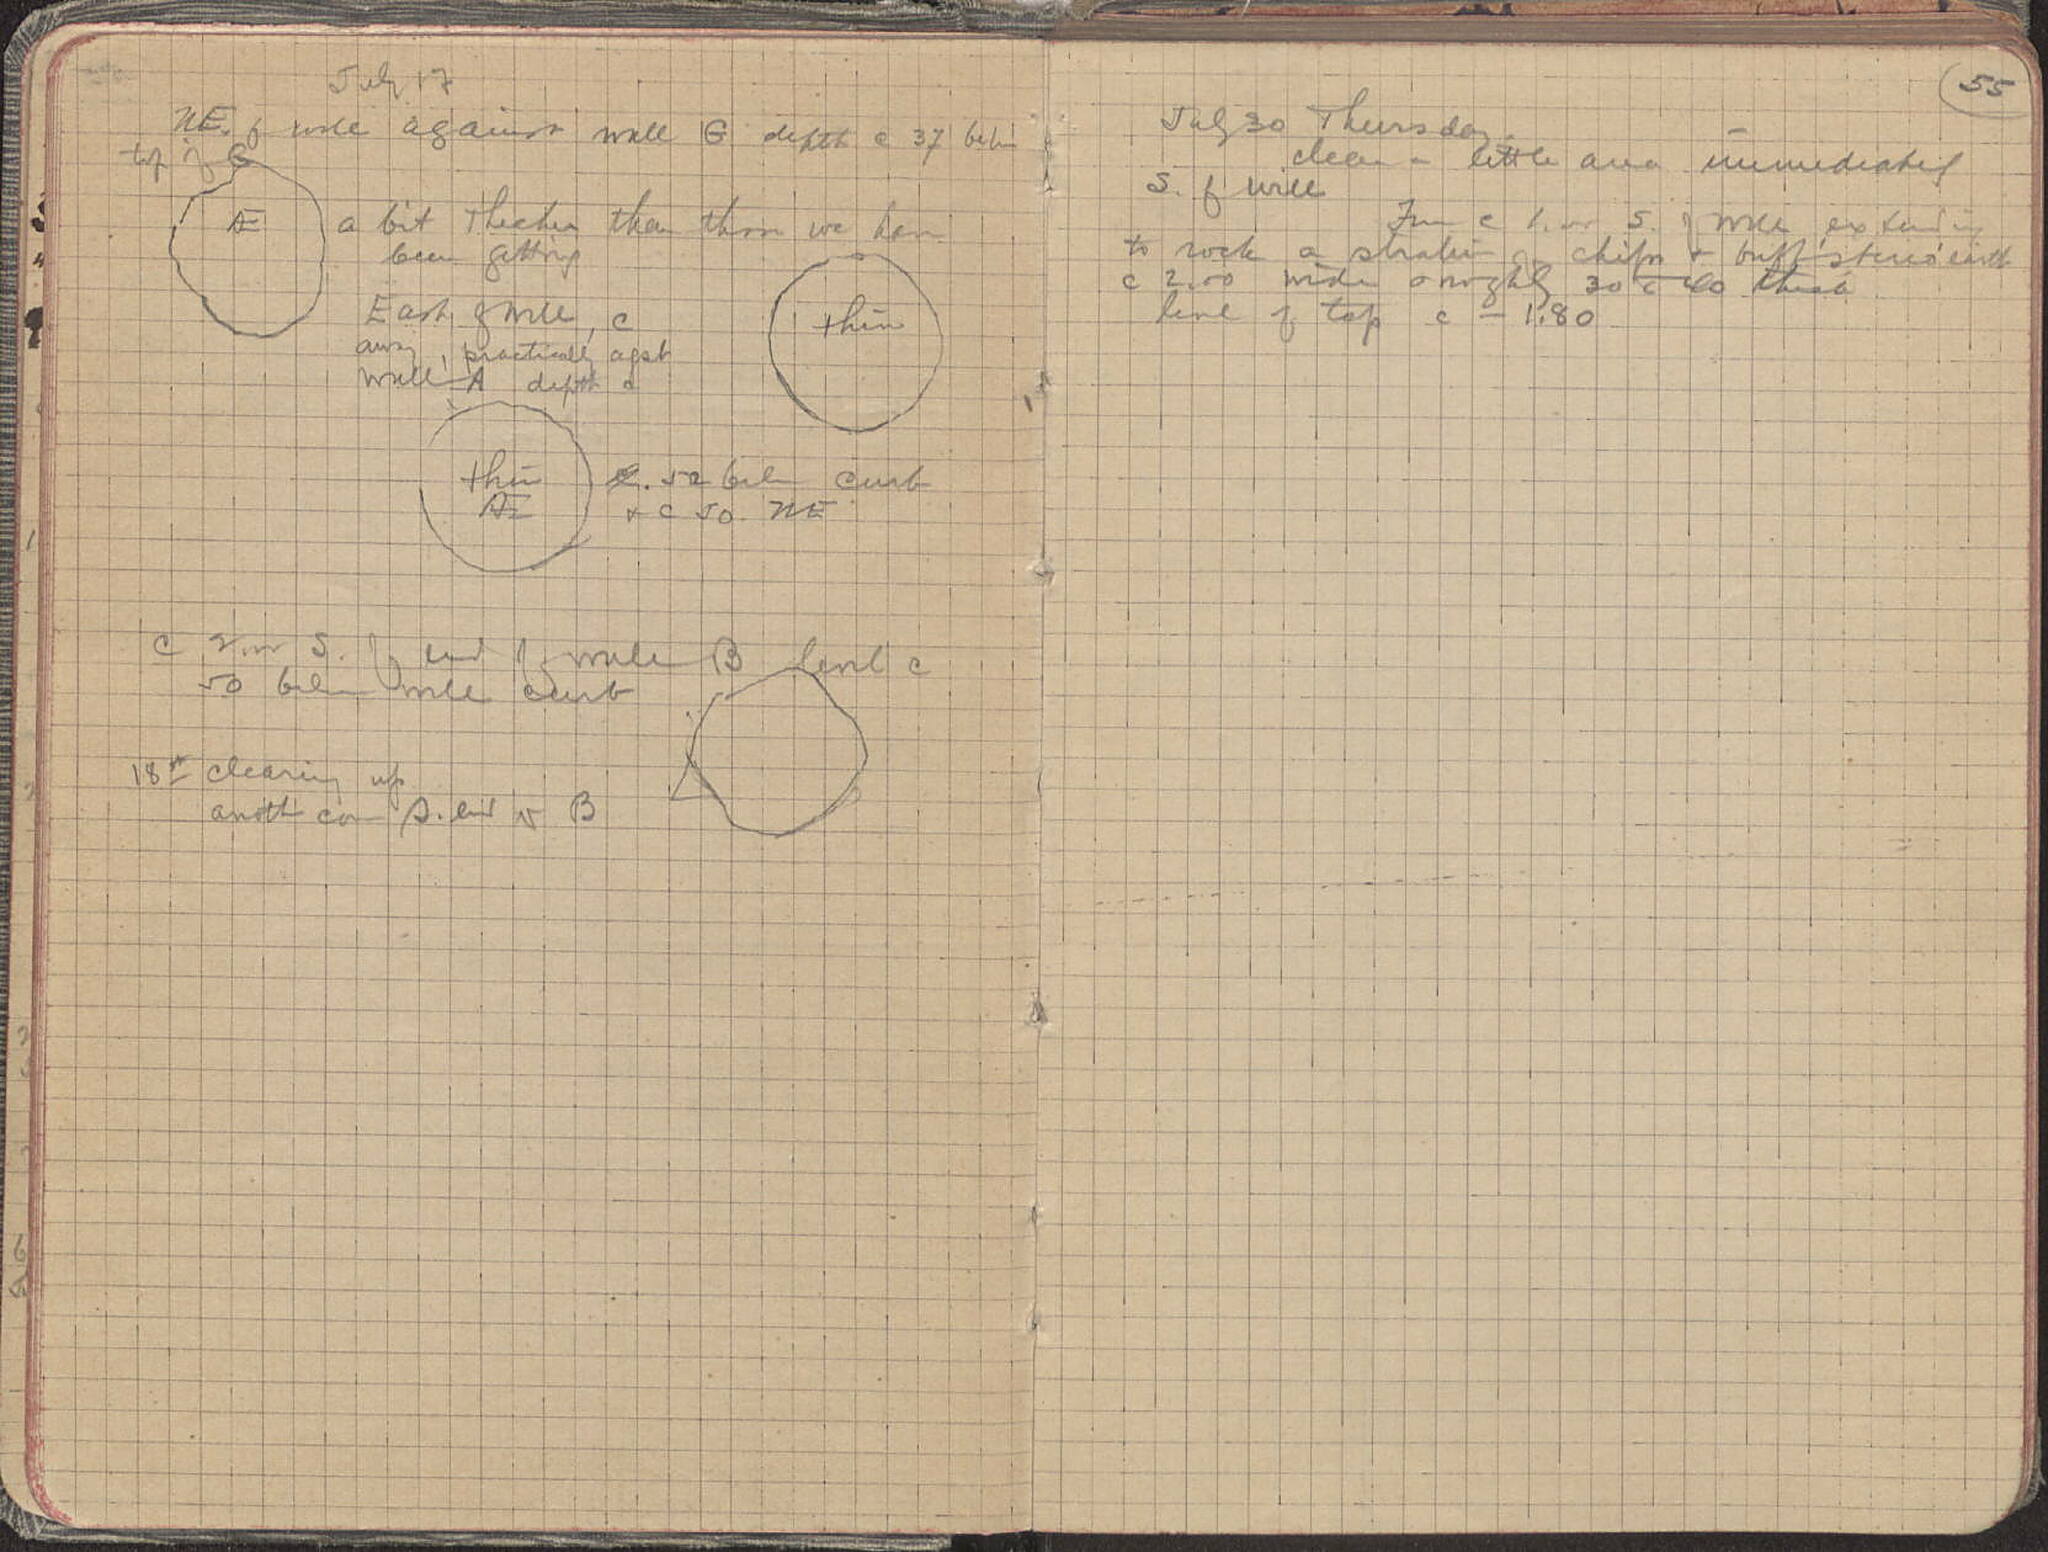 July 17
NE. of well against wall G depth c 37 below
top of G
Æ
a bit thicker than those we have
been getting
East of well, c
away, practically agst
wall A depth c
thin
thin
Æ
.50 below curb
+ c 50. NE
c 2.00 S. of end of wall B level c
50 below well curb
18th clearing up
another coin S. end w B
55
July 30 Thursday.
clean a little area immediately
S. of well
From c 1.00 S. of well extending
to rock a stratum of chips + buff stereo earth
c 2.00 wide & roughly 30 c 40 thick
level of top c - 1.80